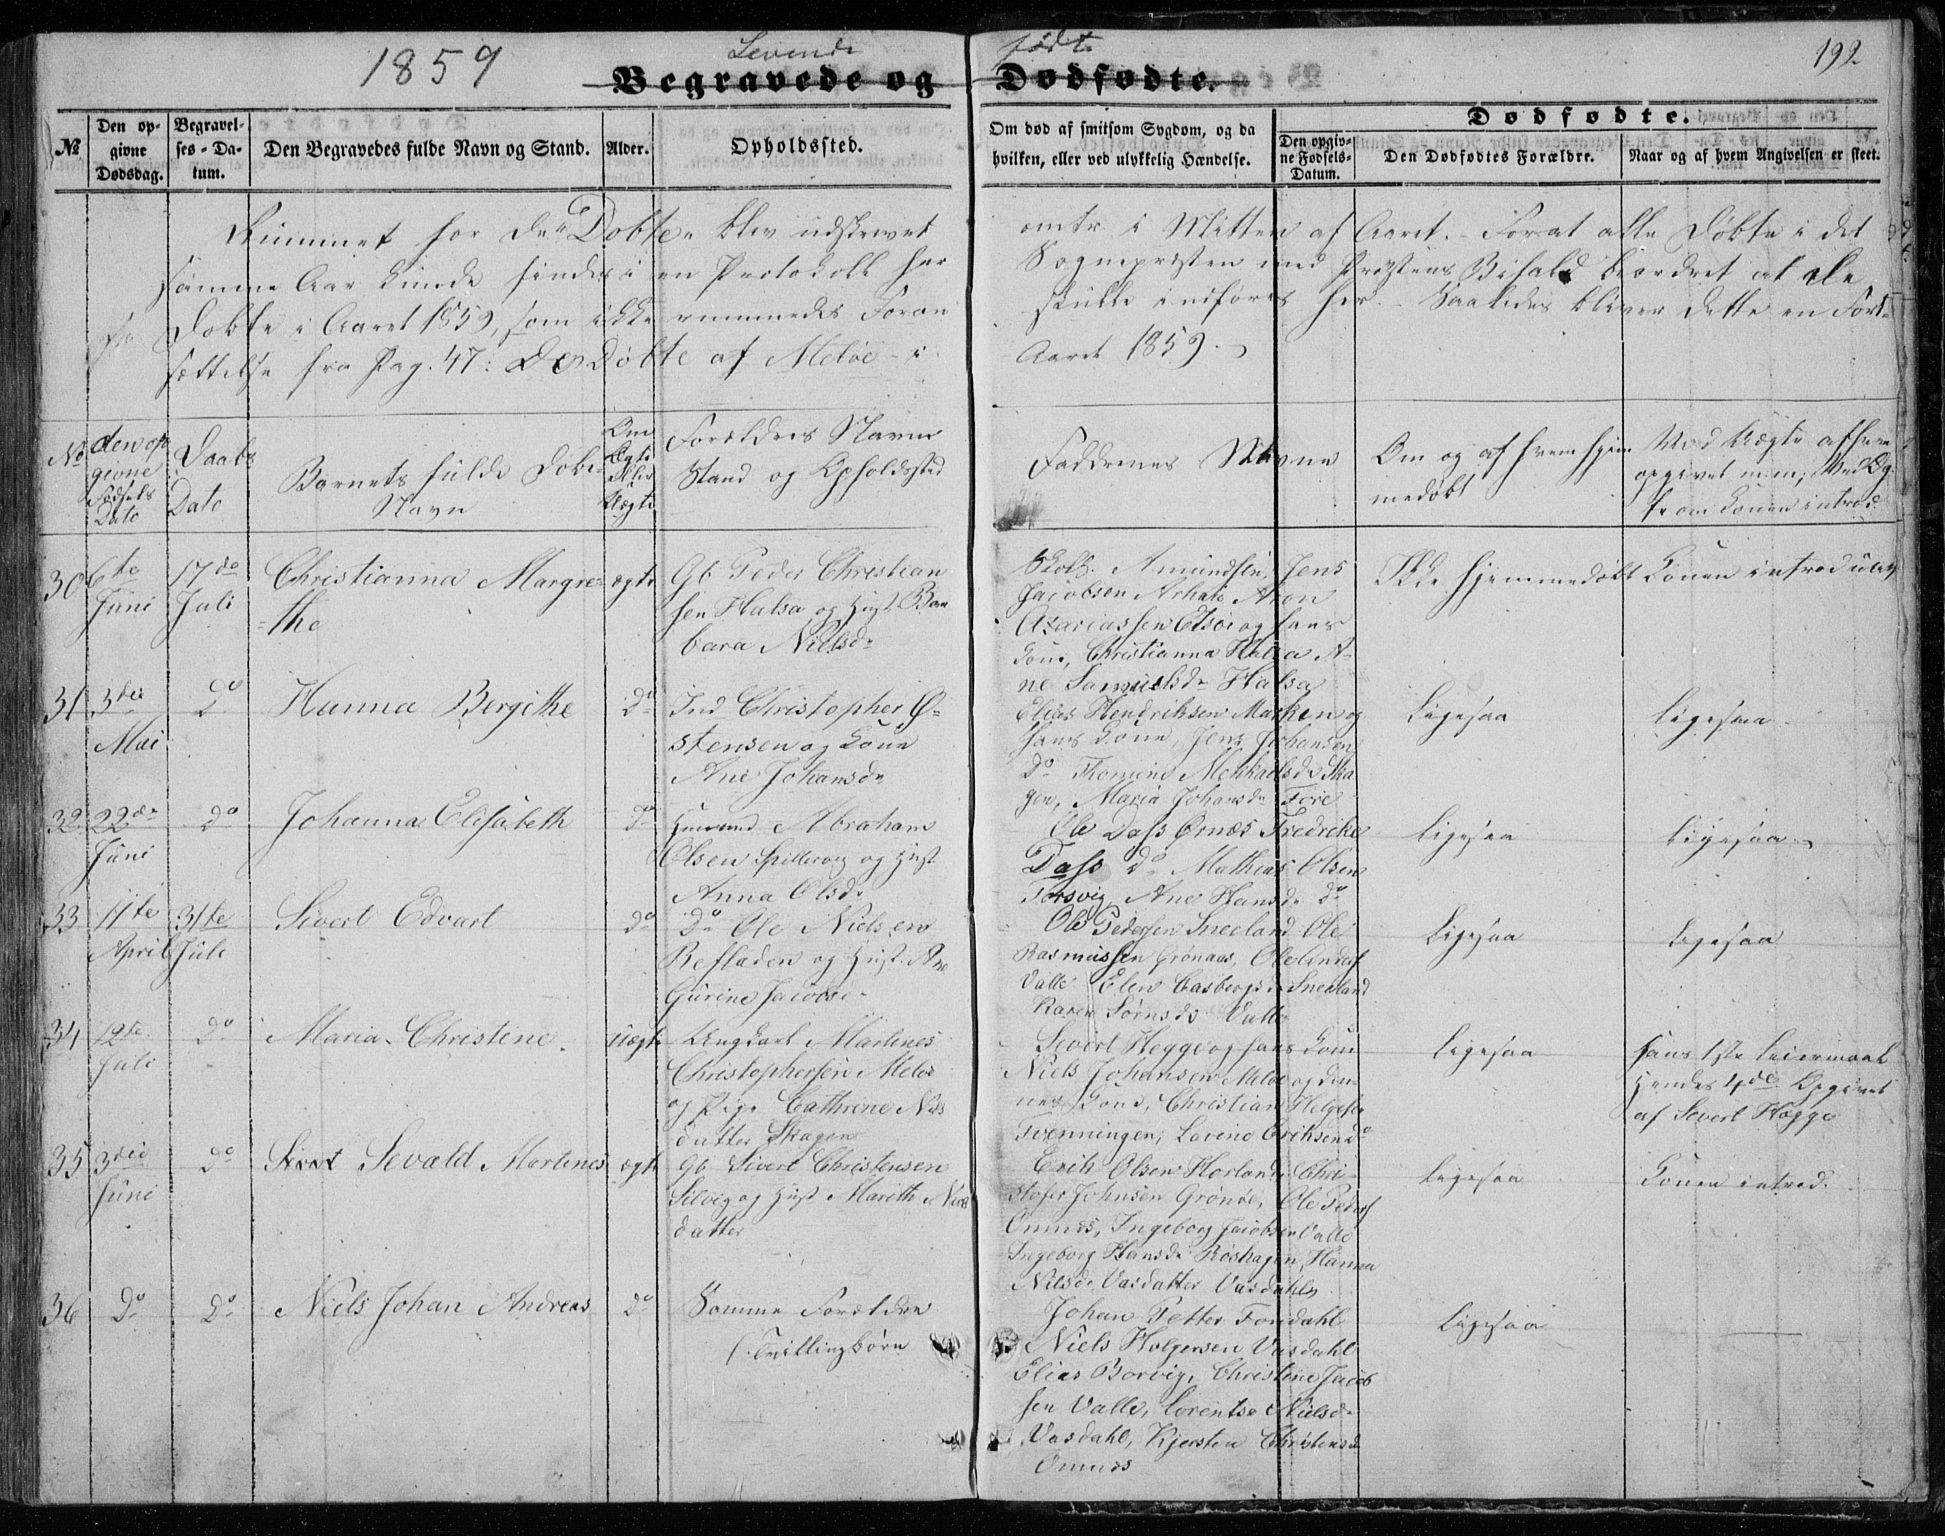 1859
Levende
født
192
Begravede og Dødfødte.
№
Den op-
givne
Dødsdag.
Begravel-
ses-Da-
tum.
Den Begravedes fulde Navn og Stand.
Alder.
Opholdssted.
Om død af smitsom Sygdom, og da
hvilken, eller ved ulykkelig Hændelse.
Dødfødte.
Den opgiv-
ne Fødsels-
Datum.
Den Dødfødtes Forældre.
Naar og af hvem Angivelsen er skeet.
Rummet for de Døbte blev udskrevet
samme Aar kunde findes i en Protokoll har
Døbte i Aaret 1859, som ikke rummedes Foran
sættelse fra Pag. 47: De Døbte af Meløe i
omtr. i Mitten af Aaret. - Forat alle Døbte i det
Sognepræsten med Provstens Bifald beordret at de
skulle indføres her. - Saaledes bliver dette en Fort-
Aaret 1859.
No
den op
givne
Fødsels
Dato
Daabs
Dato
Barnets fulde Døbe
Navn
Om
Ægte
eller
Uægte
Forældres Navne
Stand og Opholdssted
Faddernes Navne
Om og af hvem hjem
medøbt
Ved Uægte af hvem
opgivet m.m; Ved Æg-
te om Konen introd.
30
6te
Juni
17de
Juli
Christianna Margre=
=the
ægte
Gb Peder Christian
sen Halsa og Hust. Bar
bara Nielsdr
Skolh. Amundsen, Jens
Jacobsen Arhals Aron
Azariassen Etsøe og hans
Kone, Christianna Halsa A-
ne Samuelsdr Halsa
Ikke hjemmedøbt
Konen introduceret
31
3die
Mai
Do
Hanna Bergithe
Do
Ind Christopher Ø-
stensen og Kone
Ane Johansdr
Elias Hendriksen Marken og
hans Kone, Jens Johansen
Do Thomine Mekkaelsdr Ska
gen, Maria Johansdr Fore
Ligesaa
Ligesaa
32
22de
Juni
Do
Johanna Elisabeth
Do
Huusmd Abraham
Olsen Spildervig og Hust
Anna Olsdr
Ole Dass Ørnæs Fredrike
Dass Do Mathias Olsen
Torsvig Ane Hansdr do
Ligesaa
Ligesaa
33
11te
April
31te
Juli
Sivert Edvart
Do
Do Ole Nielsen
Refladen og Hust. Ane
Gurine Jacobsd.
Ole Pedersen Sneeland Ole
Rasmussen Grønaas, Ole Anders
Valle Elen Casbergsdr Sneeland
Karen Sørnsdr Valle
Ligesaa
Ligesaa
34
12te
Juli
Do
Maria Christene
Uægte
Ungkarl Martines
Christophersen Meløe
og Pige Cathrine Niels
datter Skagen
Sivert Hegge og hans Kone
Niels Johansen Meløe og den-
nes Kone, Christian Helgesen
Tvenningen, Lovine Eriksen do
Ligesaa
Hans 1ste Leiermaal
Hendes 4de Opgivet
af Sivert Hegge
35
3die
Juni
Do
Sivert Sevald Martines
ægte
Gb Sivert Christensen
Selvig og Hust Marith Niels
datter
Erik Olsen Horland Chri-
stofer Johnsen Grønøe, Ole Peders
Omnes, Ingeborg Jacobsen Valle
Ingeborg Hansdr Røshagen, Hanna
Nilsdr Vasdatter Vasdahl
Ligesaa
Konen introd.
36
Do
Do
Niels Johan Andreas
Do
Samme Forældre
(Tvillingbørn
Johan Petter Fondahl
Niels Holgersen Vasdahl
Elias Borvig, Christine Jacob
sen Valle, Lorentse Nielsd.
Vasdahl, Kjersten Christensd
Omnes
Ligesaa